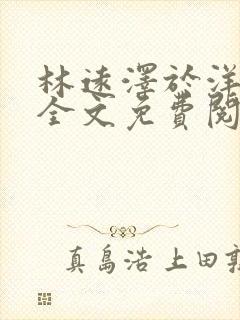 林遠澤於洋
全文免費閱
真島浩 上田敦